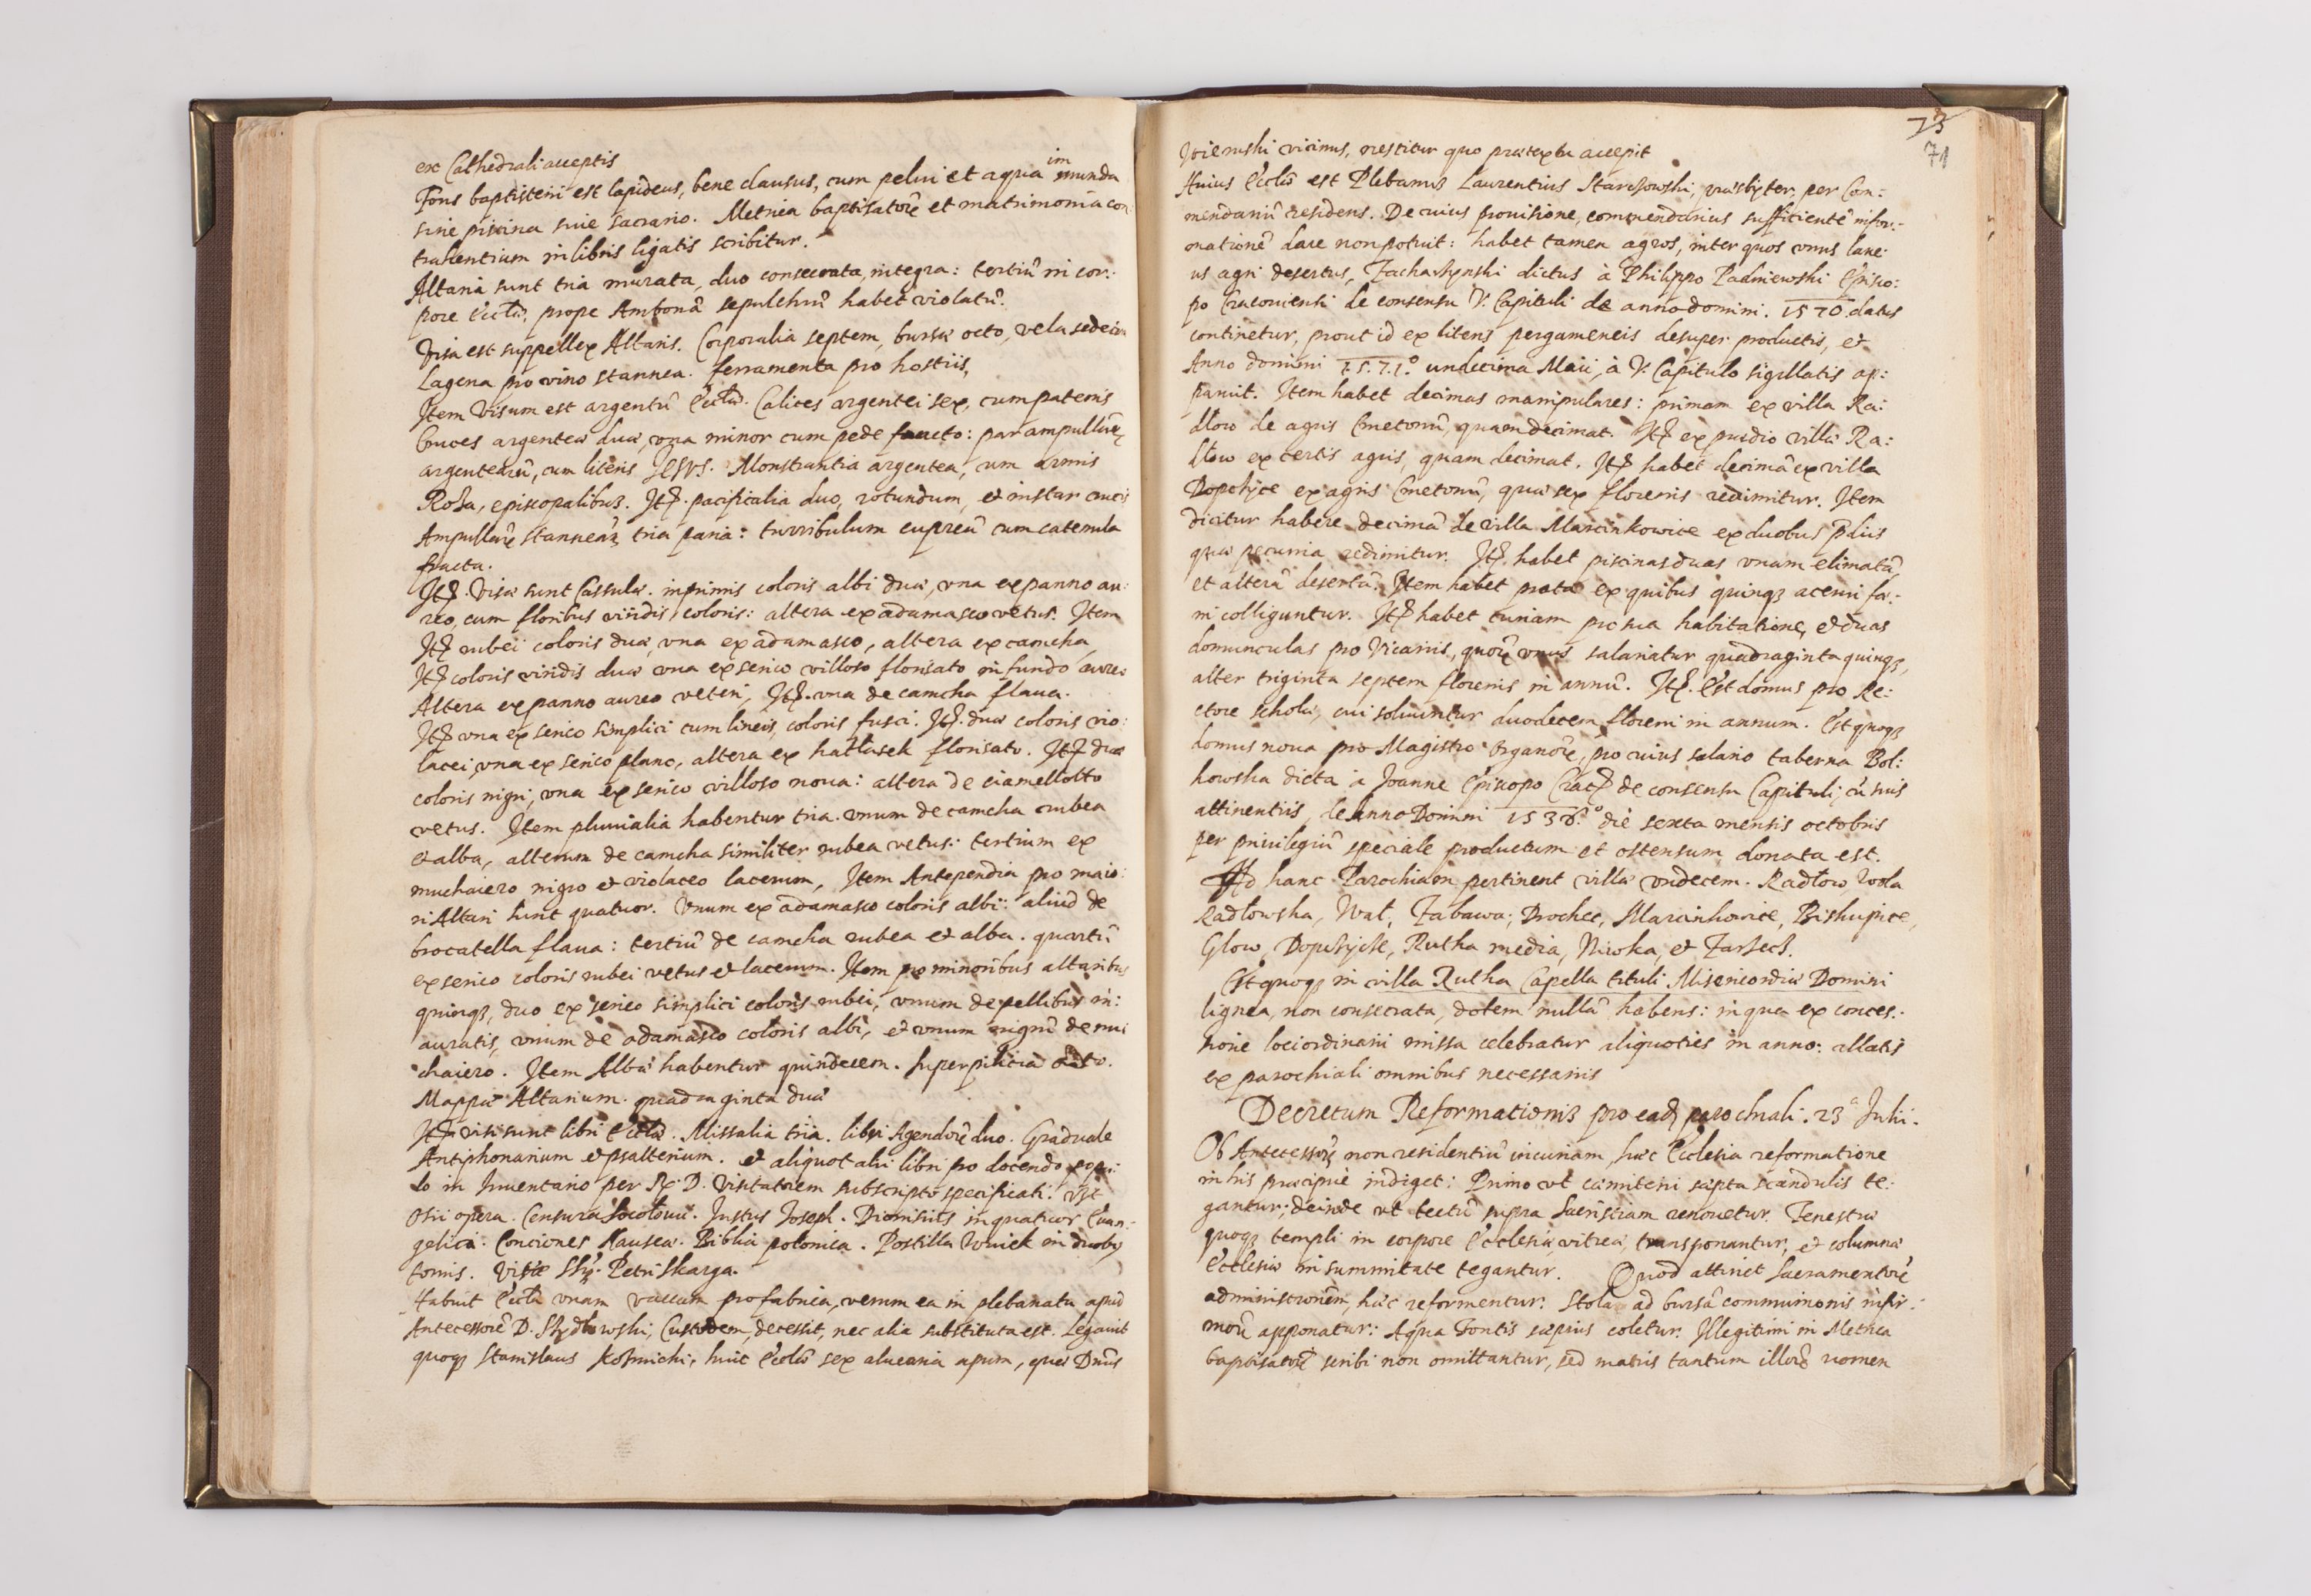 ex Cathedrali acceptis
Fons baptisterii est lapideus, bene clausus, cum pelui et aqua immunda
sine piscina siue sacrario. Metrica baptisatorũ et matrimonia con
trahentium in libris ligatis scribitur.
Altaria sunt tria murata, duo consecrata, integra: tertiũ in cor:
pore Eccłæ, prope Ambonã sepulchrũ habet violatũ.
Visa est suppellex Altaris. Corporalia septem, bursæ octo, vela sedecim
Lagena pro vino stannea. ferramenta pro hostiis,
Item Visum est argentũ Eccłæ. Calices argentei sex, cum patenis
Cruces argenteæ duæ, vna minor cum pede fracto: par ampullarũ
argentearũ, cum literis IESVS. Monstrantia argentea, cum armis
Roża, episcopalibus. Itẽ. pacificalia duo, rotundum, et instar crucis
Ampullarũ stannearũ tria paria: turribulum cupreũ cum catenula
fracta.
Itẽ. Visæ sunt Casulæ. inprimis coloris albi duæ, vna ex panno au:
reo, cum floribus viridis coloris: altera ex adamasco vetus. Item
Itẽ rubei coloris duæ, vna ex adamasco, altera ex camcha
Itẽ coloris viridis duæ vna ex serico villoso florisato in fundo aureo
Altera ex panno aureo veteri, Itẽ. vna de camcha flaua.
Itẽ vna ex serico simplici cum lineis, coloris fusci. Itẽ. duæ coloris vio:
lacei, vna ex serico plano, altera ex hatłasek florisato. Itẽ duæ
coloris nigri, vna ex serico villoso noua: altera de ciamellotto
vetus. Item pluuialia habentur tria. vnum de camcha rubea
et alba, alterum de camcha similiter rubea vetus: tertium ex
muchaiero nigro et violaceo lacerum, Item Antependia pro maio:
ri Altari sunt quatuor. Vnum ex adamasco coloris albi: aliud de
brocatella flaua: tertiũ de camcha rubea et alba. quartũ
ex serico coloris rubei vetus et lacerum. Item pro minoribus altaribus
quinqȝ, duo ex serico simplici coloris rubei, vnum de pellibus in:
auratis, vnum de adamasco coloris albi, et vnum nigrũ de mu
chaiero. Item Albæ habentur quindecem. Superpilicia octo.
Mappæ Altarium. quadraginta duæ
Itẽ visi sunt libri Eccłæ. Missalia tria. libri Agendorũ duo. Graduale
Antiphonarium et psalterium. et aliquot alii libri pro docendo popu:
lo in Inuentario per R. D. Visitatorem subscripto specificati. vt
Osii opera. Censura Socolouii. Iustus Ioseph. Dionisius in quatuor Euan:
gelia. Conciones Nausea. Biblia polonica. Postilla Wuiek in duobȝ
tomis. Vitæ SSȝ. Petri Skarga.
Habuit Eccła vnam vaccam pro fabrica, verum ea in plebanatu apud
Antecessorẽ D. Szydłowski, Custodem, decessit, nec alia substituta est. Legauit
quoqȝ Stanislaus Kośmicki, huic Eccłæ sex aluearia apum, quæ Dnus
73
71
Wieruski vicinus, nescitur quo prætextu accepit
Huius Eccłæ est Plebanus Laurentius Starczowski, præsbyter, per Com:
mendariũ residens. De cuius prouisione, commendarius sufficientẽ infor:
mationẽ dare non potuit: habet tamen agros, inter quos vnus lane:
us agri desertus, Zacharzynski dictus à Philippo Padniewski Episco:
po Cracouiensi de consensu V. Capituli de anno domini. 1570. datus
continetur, prout id ex literis pergameneis desuper productis, et
Anno domini 1571.º undecima Maii, à V. Capitulo sigillatis ap:
paruit. Item habet decimas manipulares: primam ex villa Ra:
dłow de agris Cmetonũ, quam decimat. Itẽ ex prædio villæ Ra:
dłow ex certis agris, quam decimat. Itẽ habet decimã ex villa
Dopchyce ex agris Cmetonũ, quæ sex florenis redimitur. Item
dicitur habere decimã de villa Marcinkowice ex duobus p̃diis
quæ pecunia redimitur. Itẽ. habet piscinas duas vnam elimatã
et alterã desertã. Item habet prata ex quibus quinqȝ acerui fœ:
ni colliguntur. Itẽ habet curiam pro sua habitatione, et duas
domunculas pro Vicariis, quorũ vnus salariatur quadraginta quinqȝ,
alter triginta septem florenis in annũ. Itẽ. Est domus pro Re:
ctore scholæ, cui soluuntur duodecem floreni in annum. Est quoqȝ
domus noua pro Magistro Organorũ, pro cuius salario taberna Bol:
howska dicta à Joanne Episcopo Crac̃ de consensu Capituli, cũ suis
attinentiis, de Anno Domini 1536.º die sexta mensis octobris
per priuilegiũ speciale productum et ostensum donata est.
Ad hanc Parochiam pertinent villæ vndecem. Radłow, Wola
Radłowska, Wał, Zabawa, Brochec, Marcinkowice, Biskupice,
Glow, Dopchyce, Rutka media, Niwka, et Zarzecz.
Est quoqȝ in villa Rutka Capella tituli Misericordiæ Domini
lignea, non consecrata, dotem nullã habens: in qua ex conces:
sione loci ordinarii missa celebratur aliquoties in anno: allatis
ex parochiali omnibus necessariis
Decretum Reformationis pro eadȝ parochiali. 23ª Iulii.
Ob Antecessorũ non residentiũ incuriam, hæc Ecclesia reformatione
in his præcipuè indiget: Primo vt cæmiterii sæpta scandulis te:
gantur; deinde vt tectũ supra Sacristiam renouetur. Fenestræ
quoqȝ templi in corpore Ecclesiæ vitreæ, transponantur, et columnæ
Ecclesiæ in summitate tegantur. Quod attinet Sacramentorũ
administrationem, hæc reformentur. Stola ad bursã communionis infir:
morũ apponatur: Aqua Fontis sæpius coletur. Illegitimi in Metrica
baptisatorũ scribi non omittantur, sed matris tantum illorũ nomen